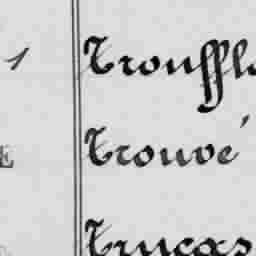 1 Trouffl
E Trouvé
Trucas